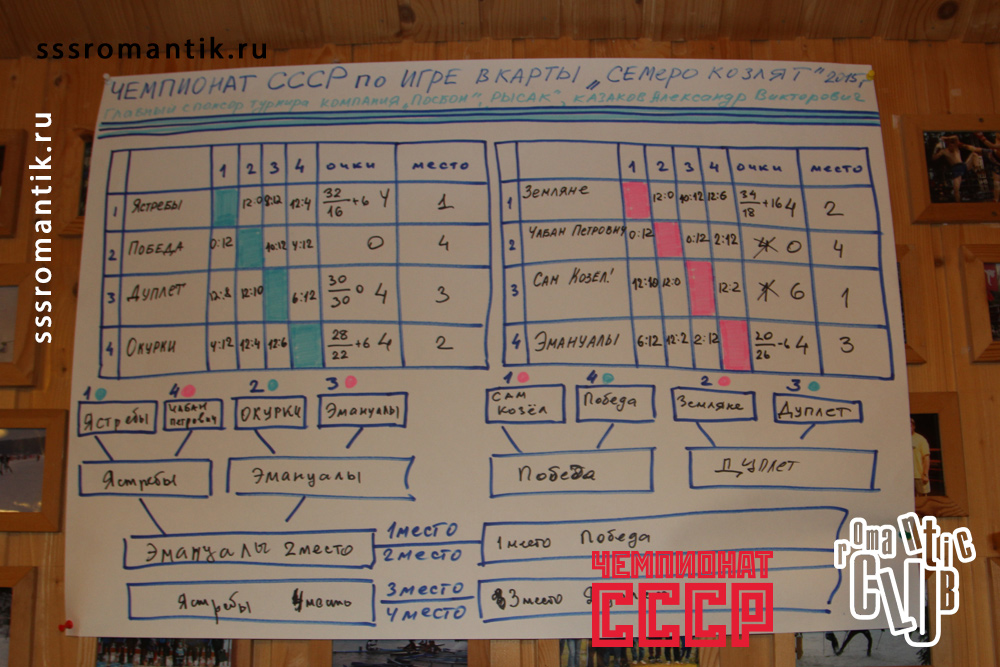 sssromantik.ru
sssromantik.ru
sssromantik.ru
ЧЕМПИОНАТ СССР по ИГРЕ В КАРТЫ „СЕМЕРО КОЗЛЯТ“ 2015г
Главный спонсор турнира компания „Посбон“, „РЫСАК“, КАЗАКОВ Александр Викторович
1 2 3 4 очки место
1 Ястребы 12:0 8:12 12:4 32/16 +6 4 1
2 ПОБЕДА 0:12 10:12 4:12 0 4
3 ДУПЛЕТ 12:8 12:10 6:12 30/30 0 4 3
4 ОКУРКИ 4:12 12:4 12:6 28/22 +6 4 2
1 2 3 4 очки место
1 Земляне 12:0 10:12 12:6 34/18 +16 4 2
2 ЧАБАН ПЕТРОВИЧ 0:12 0:12 2:12 0 4
3 САМ КОЗЕЛ! 12:10 12:0 12:2 6 1
4 ЭМАНУАЛЫ 6:12 12:2 2:12 20/26 -6 4 3
1 4 2 3
Ястребы ЧАБАН Петрович ОКУРКИ Эмануалы
Ястребы Эмануалы
1 4 2 3
САМ КОЗЁЛ Победа Земляне Дуплет
Победа Дуплет
Эмануалы 2 место
1 место
2 место
1 место Победа
Ястребы
3 место
4 место
3 место
ЧЕМПИОНАТ
СССР
romantic
CLUB